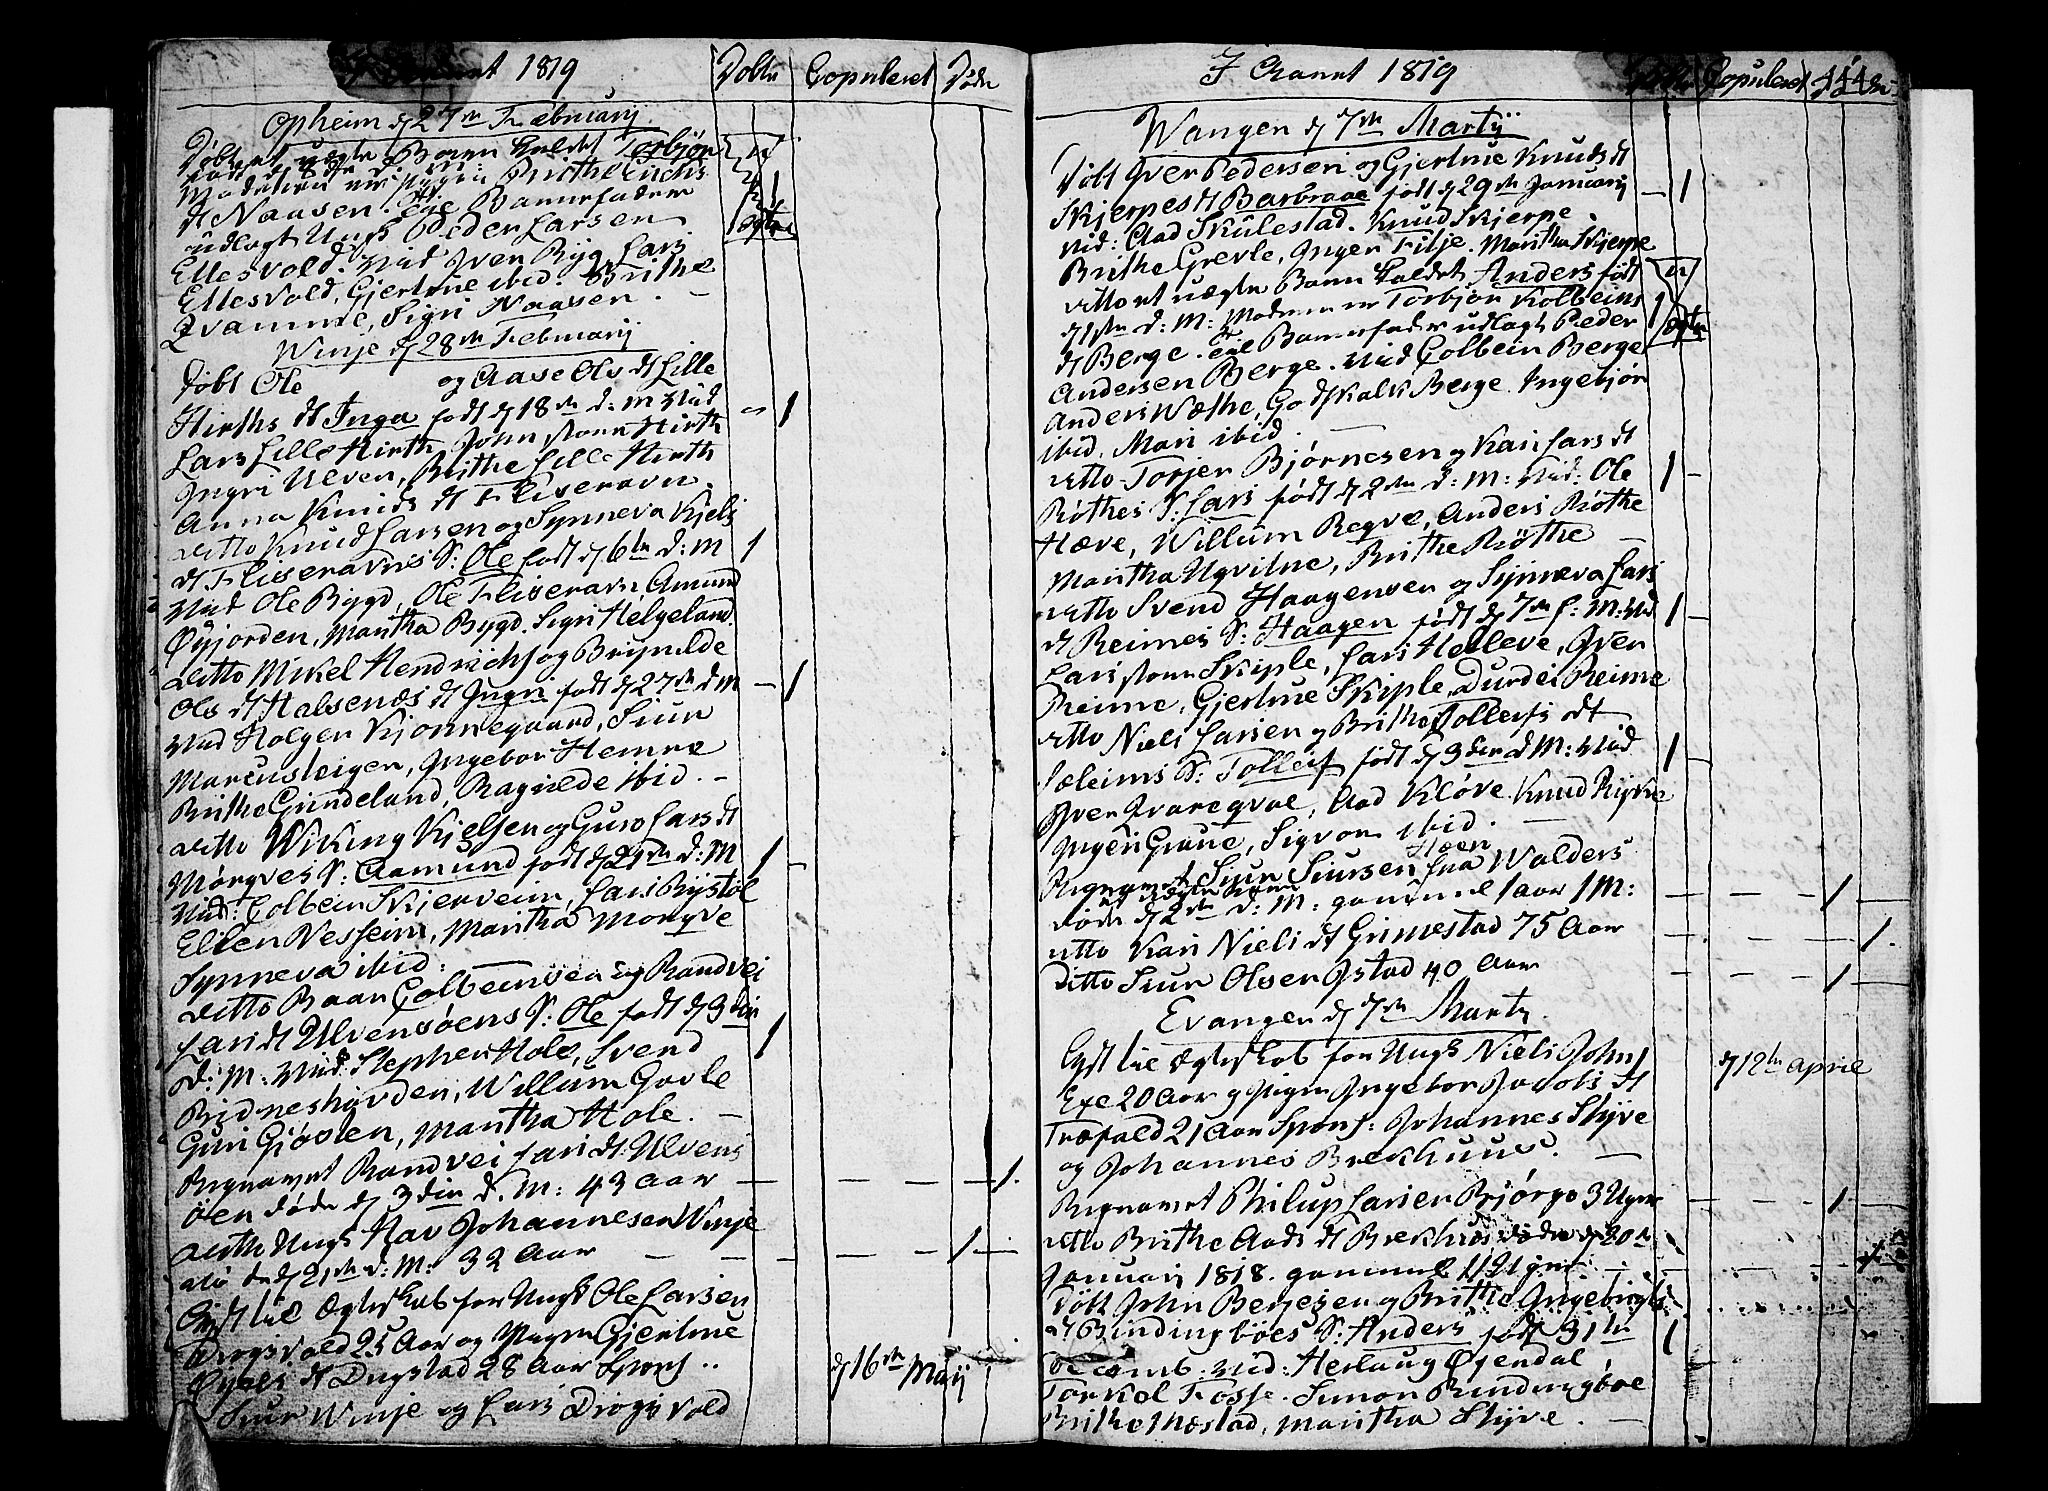 1819 Døbte Copuleret Døde
Opheim d 27de Februarij
Døbt et uægte Barn kaldet Torbjør
Moderen er Pigen Brithe
dt Naasen. Til Barnefader
udlagt Ungk Peder Larsen
Ellesvold. Vid Iver Ryg, Lars
Ellesvold, Gjertrue ibid. Brithe
Qvamme, Sigri Naasen. –
Winje d 28de Februarij
Døbt Ole og Aase Ols dt Lille
Hirths dt Inga født d 18de d: M Vid
Lars Lille Hirth, John store Hirth
Ingri Ulven, Brithe Lille Hirth
Anna Knuds dt Fliseravn.
ditto Knud Larsen og Synneva Kjels
dt Fliseravns S: Ole født d 6te d: M
Vid Ole Bygd, Ole Fliseravn, Amund
Øyjorden, Maritha Bygd. Sigri Helgeland.
ditto Mikel Hendrichs og Brynilde
Ols dt Halsenæs dt Ingri født d 27de d M
Vid Holger Kjonnegaard, Siur
Marcusteigen, Ingebor Hemre
Brithe Grindeland, Ragnilde ibid. –
ditto Wiking Kjelsen og Guro Lars dt
Mørqves S: Aamund født d 21de d: M
Vid: Colbein Skjerveim, Lars Rystøl
Ellen Nesheim, Maritha Mørqve
Synneva ibid.
ditto Baar Colbeinsen og Randvei
Lars dt Ulvensøens S: Ole født d 3die
d: M: Vid: Stephen Hole, Svend
Bidneshovden, Willum Gavle
Guri Giøsten, Maritha Hole. –
Begravet Randvei Lars dt Ulvens
öen døde d 3die d. M: 43 Aar
ditto Ungk Hav Johannesen Winje
døde d 21de d: M: 32 Aar
Lyst til Ægteskab for Ungk Ole Larsen
Drogsvold 25 Aar og Pigen Gjertrue
dt Dugstad 28 Aar Spons
Siur Winje og Lars Drogsvold
d 16de Maij
I Aaret 1819 Copuleret
Wangen d 7de Martij
Døbt Iver Pedersen og Gjertrue Knuds dt
Skjerpes dt Barbraae født d 29de Januarij
Vid: Aad Skulestad. Knud Skjerpe
Brithe Grevle, Inger Filje. Maritha Skjerpe
ditto et uægte Barn kaldet Anders født
d 1ste d: M: Moderen er Torbjør Kolbeins
dt Berge. Til Barnefader udlagt Peder
Andersen Berge. Vid Colbein Berge
Anders Wæthe, Godskalk Berge Ingebjør
ibid. Mari ibid.
ditto Torjer Bjørnesen og Kari Lars dt
Röthes S. Lars født d 2den d: M: Vid: Ole
Hæve, Willum Reqve, Anders Röthe
Maritha Ugvitne, Brithe Röthe –
ditto Svend Haagensen og Synneva Lars
dt Reimes S: Haagen født d 7de f: M: Vid
Lars store Skiple, Lars Helleve, Iver
Reime, Gjertrue Skiple, Durdei Reime
ditto Niels Larsen og Brithe Tollefs dt
Sæleims S: Tolleif født d 3die d M: Vid
Iver Qvareqval, Aad Kløve Knud Rykke
Ingeri Graue, Sigvor ibid. –
Begravet Siur Siursen fra Walders
døde d 2den d: M: gammel 1 aar 1 M:
ditto Kari Niels dt Grimestad 75 Aar
Ditto Siur Olsen Istad 40 Aar
Evanger d 7de Martij
Lyst til Ægteskab for Ungk Niels Johns
Exe 20 Aar og Pigen Ingebor Jacobs dt
Træfald 21 Aar Spons: Johannes Styve
og Johannes Brekhuus. –
d 12te Aprile
Begravet Philup Larsen Bjørgo 3 Uger
ditto Brithe Aads dt Brekhus døde d 20de
Januarij 1818. gammel
Døbt John Berjesen og Brithe Ingebrigts
dt Bindingböes S: Anders født 31te
Decemb. Vid: Herlaug Øyendal
Torkel Fosse. Simon Bindingböe
Brithe Mestad, Maritha Styve. –